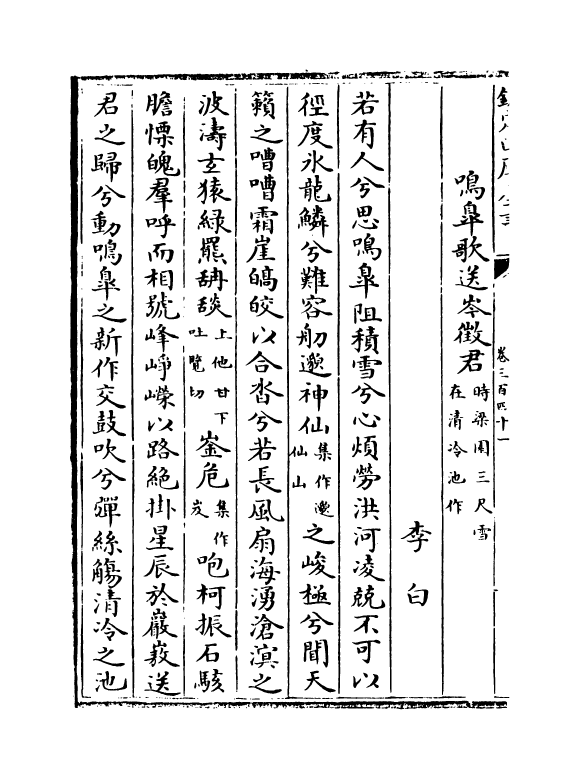 欽定四庫全書
卷三百四十一
鳴臯歌送岑徵君
時梁園三尺雪
在清冷池作
李白
若有人兮思鳴臯阻積雪兮心煩勞洪河凌兢不可以
徑度氷龍鱗兮難容舠邈神仙集作邈仙山之峻極兮聞天
籟之嘈嘈霜崖皜皎以合沓兮若長風扇海湧滄溟之
波濤玄猿綠羆舑舕上他甘下吐覽切崟危集作岌咆柯振石駭
膽慄魄羣呼而相號峰崢嶸以路絶掛星辰於巖嶅送
君之歸兮動鳴臯之新作交鼓吹兮彈絲觴清冷之池